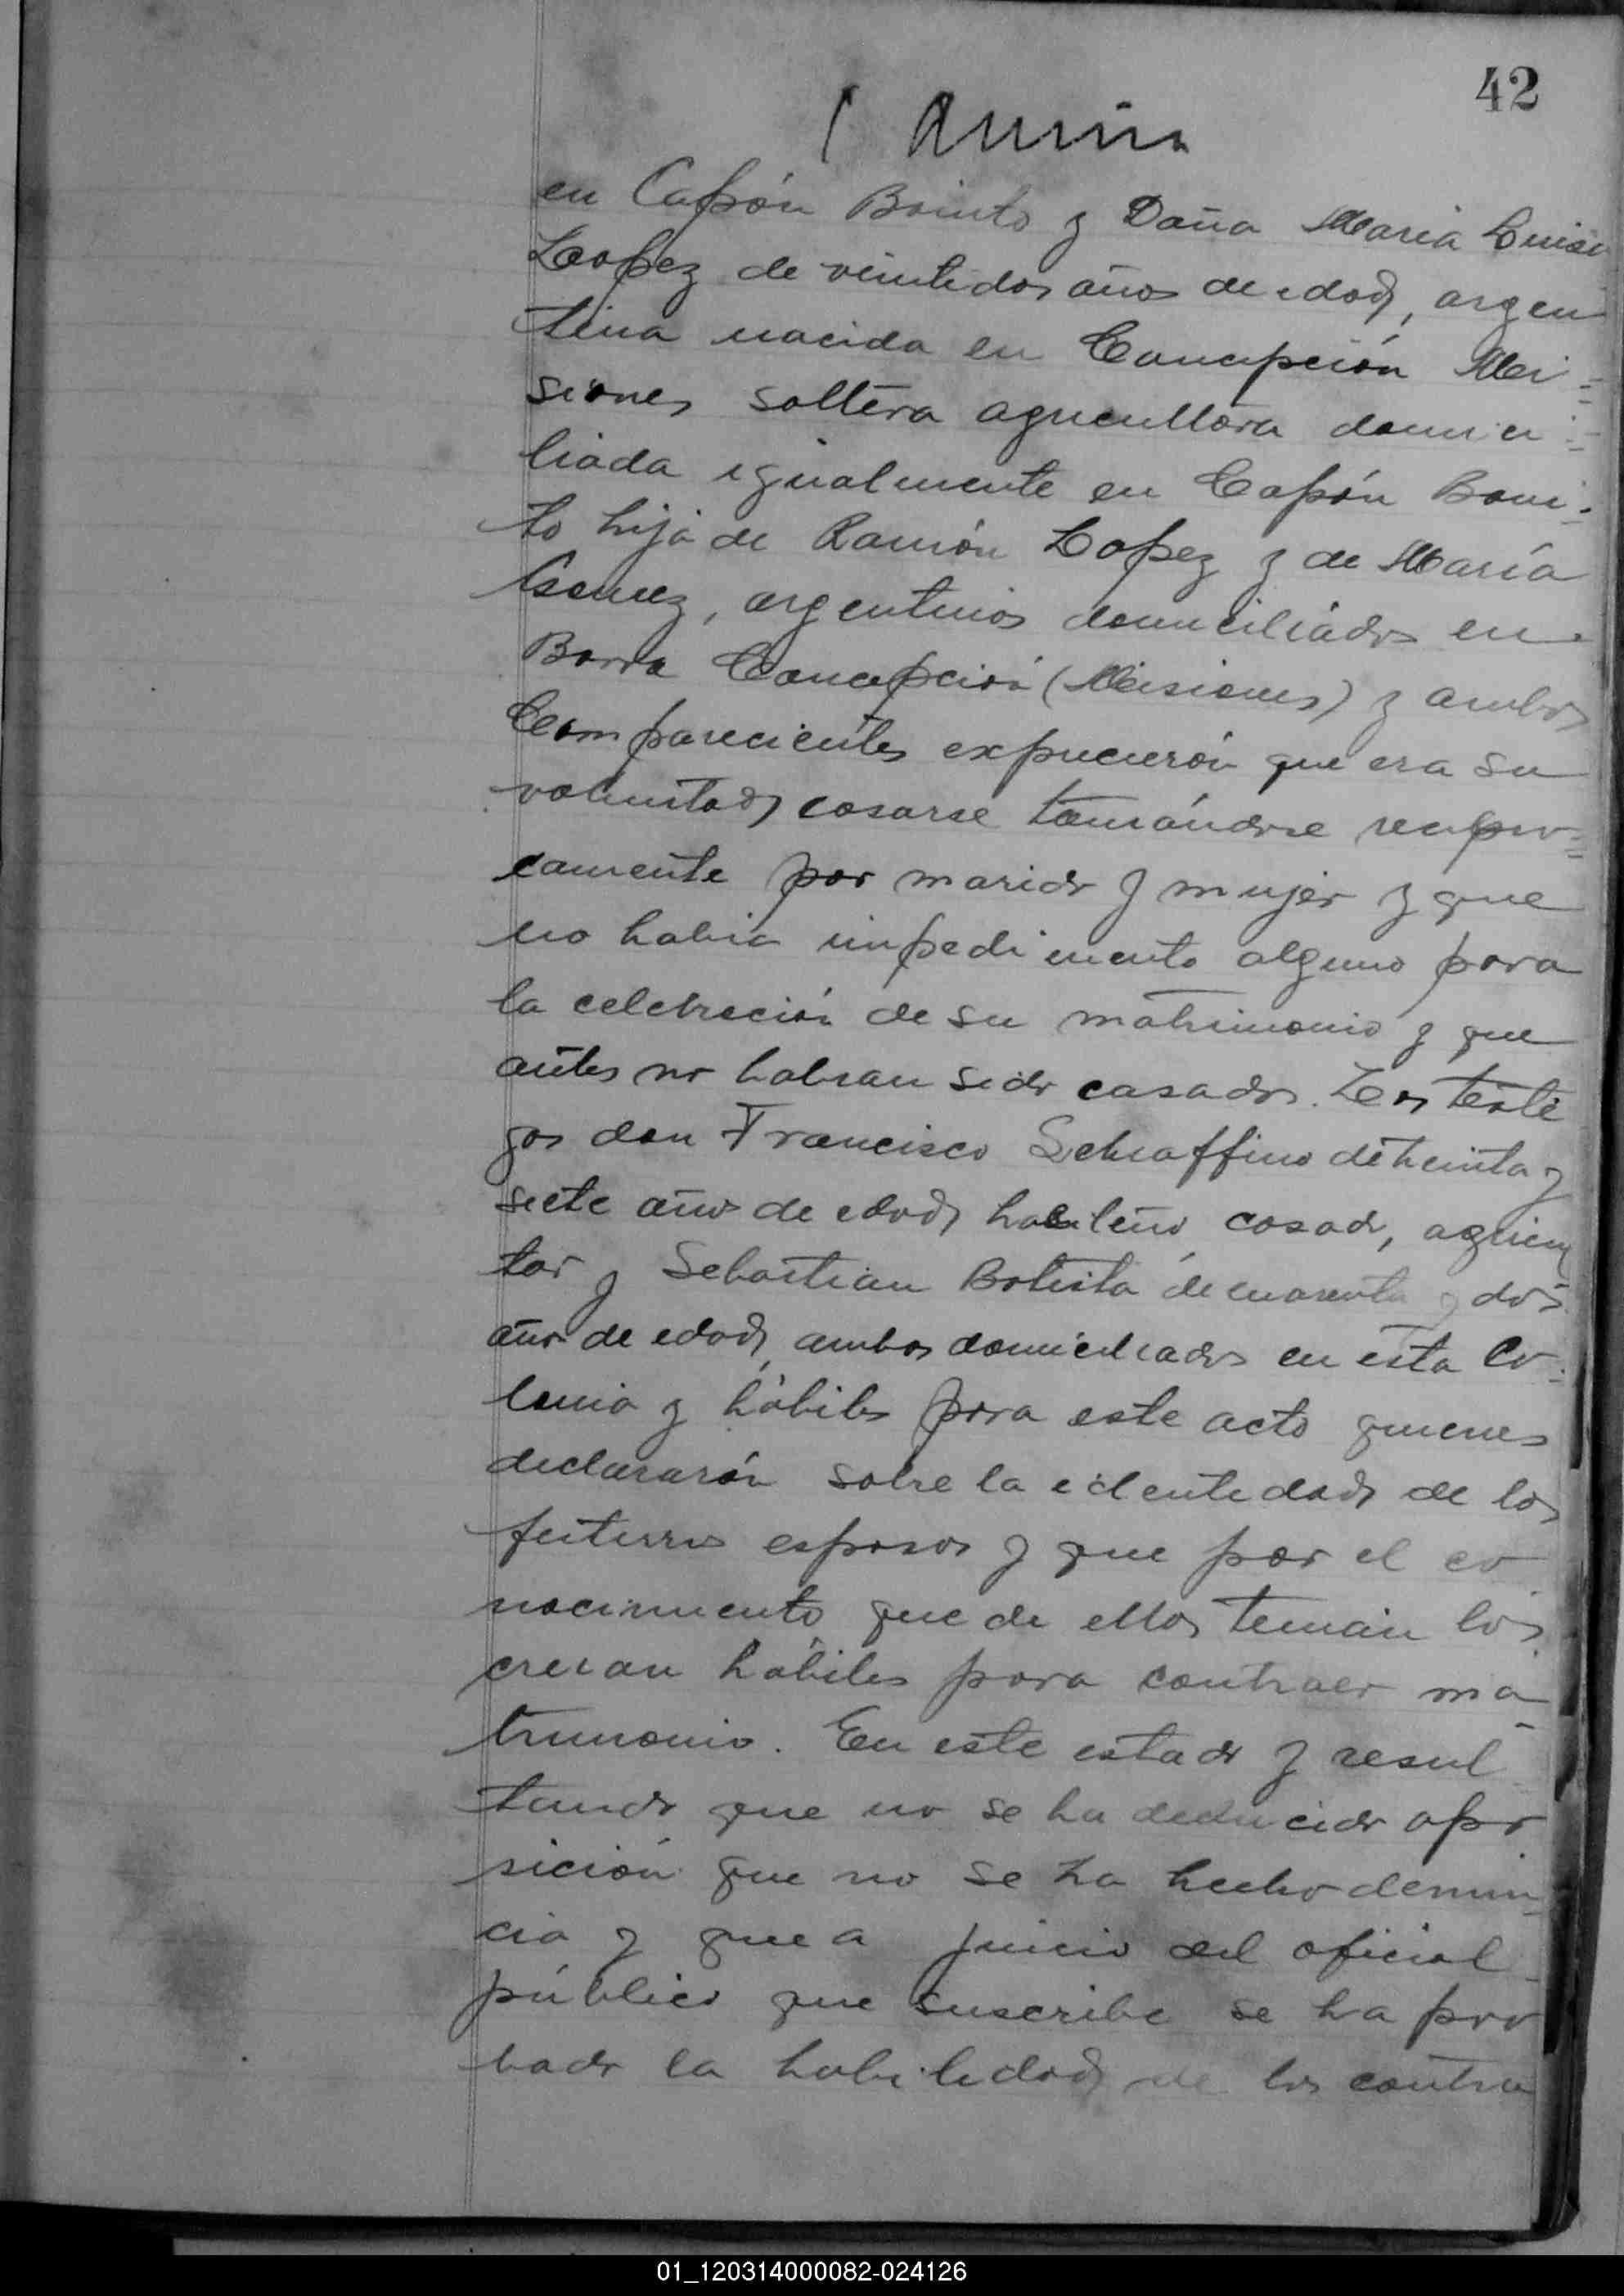 42
en Capón Bonito y Doña María Luisa
Lopez de veintidos años de edad, argen
tina nacida en Concepción Mi=
siones soltera agricultora domici=
liada igualmente en Capón Boni=
to hija de Ramón Lopez y de María
Gomez, argentinos domiciliados en
Barra Concepción (Misiones) y ambos
Comparecientes expucieron que era su
voluntad casarse tomándose recipro=
camente por marido y mujer y que
no habia impedimento alguno para
la celebración de su matrimonio y que
antes no habian sido casados. Los testi
gos don Francisco Schiaffino de treinta y
siete años de edad, casado, agricul
tor y Sebastian Botista de cuarenta y dos
años de edad, ambos domiciliados en esta Co=
lonia y hábiles para este acto quienes
declararón sobre la identidad de los
futuros esposos y que por el co
nocimiento que de ellos tenian los
creian hábiles para contraer ma
trimonio. En este estado y resul
tando que no se ha deducido opo
sición que no se ha hecho denun
cia y que a juicio del oficial
público que suscribe se ha pro
bado la habilidad de los contra
01_120314000082-024126